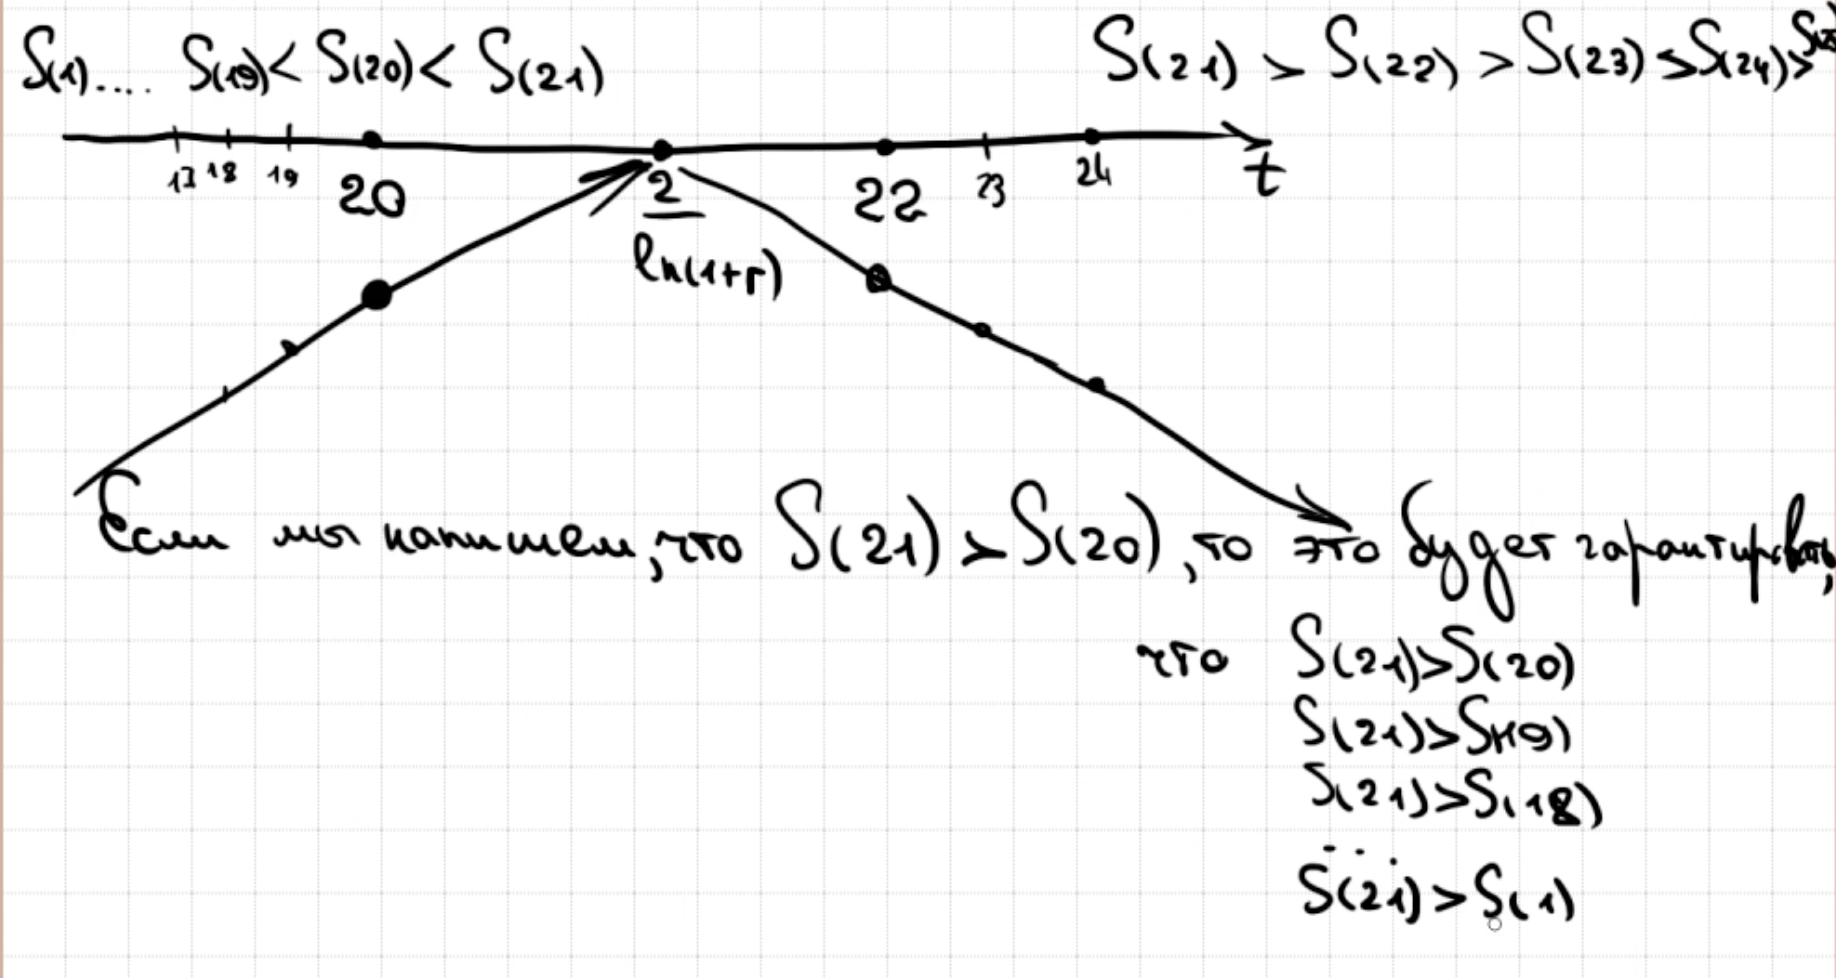 S(1).... S(19)< S(20)< S(21) S(21) > S(22) > S(23) > S(24)>
17 18 19 20 2 22 23 24 t
ln(1+r)
Если мы напишем, что S(21) > S(20), то это будет гарантировать,
что S(21)>S(20)
S(21)>S(19)
S(21)>S(18)
...
S(21)>S(1)